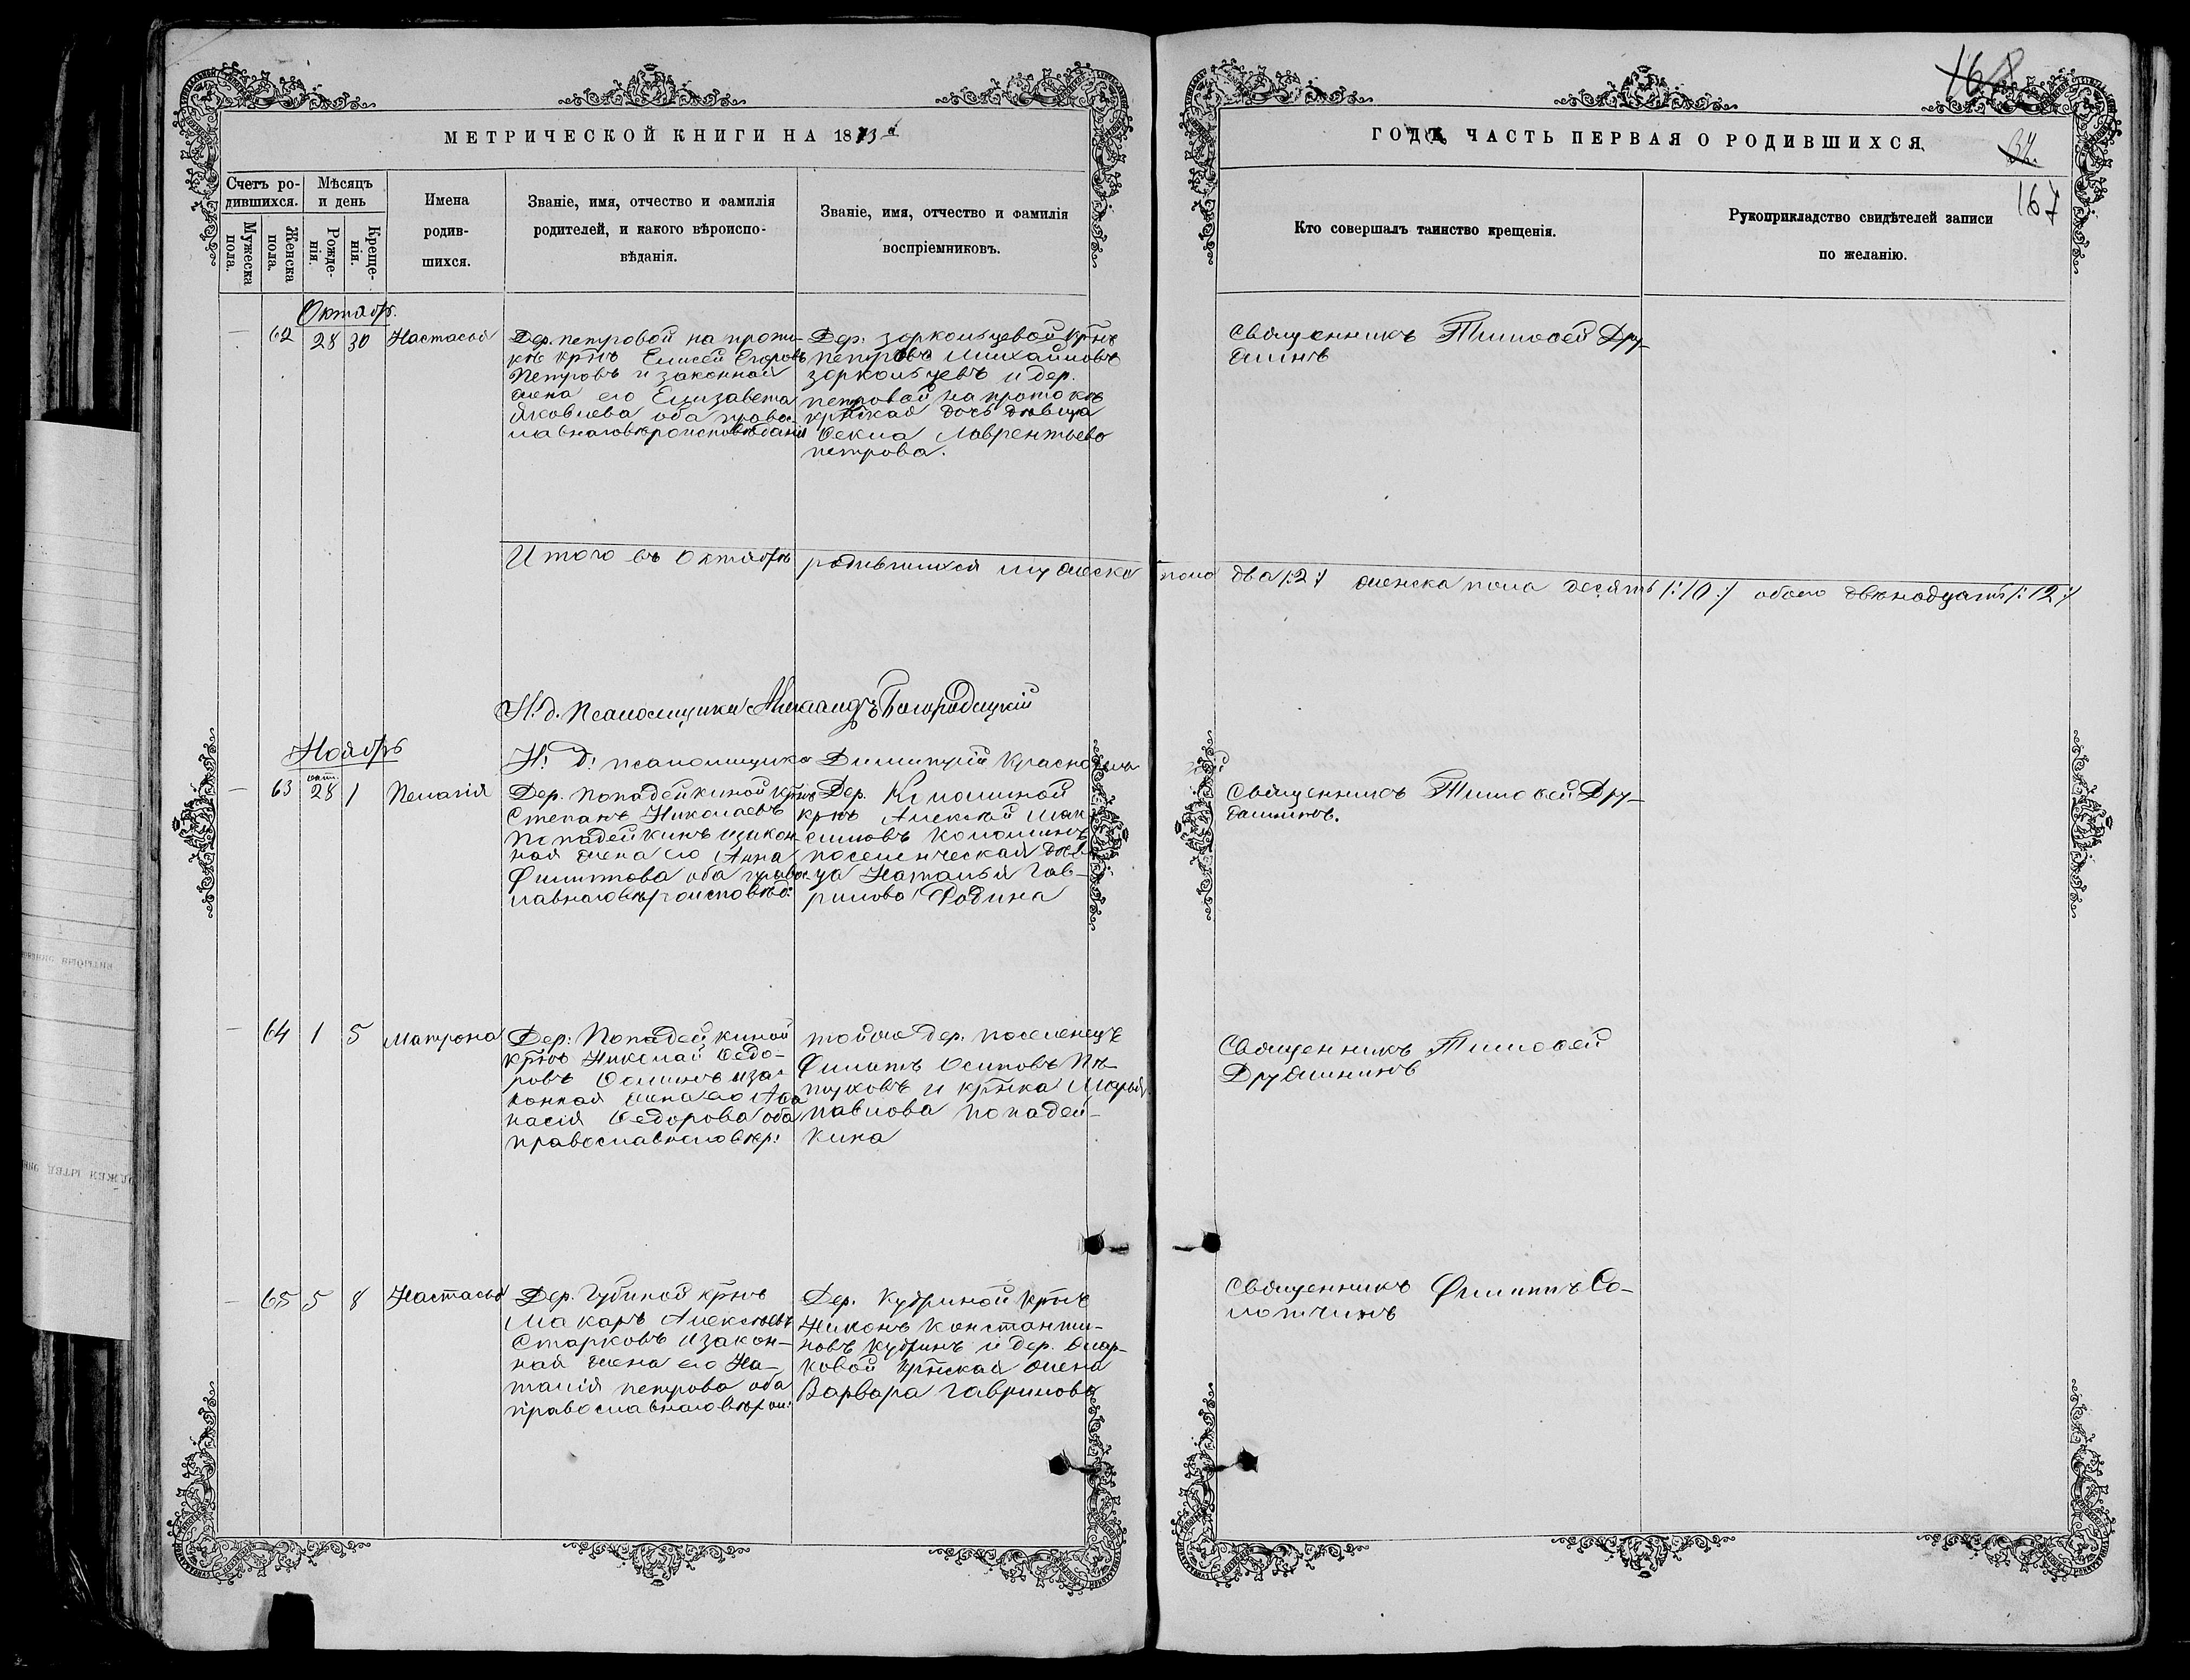 168
МЕТРИЧЕСКОЙ КНИГИ НА 1873 й
ГОДЪ, ЧАСТЬ ПЕРВАЯ О РОДИВШИХСЯ
167
Счетъ ро-
дившихся.
Мужеска пола.
Женска пола.
Мѣсяцъ
и день
Рожде-
нія.
Креще-
нія.
Имена
родив-
шихся.
Званіе, имя, отчество и фамилія
родителей, и какого вѣроиспо-
вѣданія.
Званіе, имя, отчество и фамилія
воспріемниковъ.
Кто совершалъ таинство крещенія.
Рукоприкладство свидѣтелей записи
по желанію.
Октябрь.
62 28 30 Настасья
Дер. петровой на прото-
кѣ крнъ Елисей Егоровъ
Петровъ и законная
жена его Елизавета
Яковлева оба право-
славнаго вѣроисповѣданія
Дер. зоркольцевой крнъ
петръ Михайловъ
зоркольцевъ и дер.
петровой на протокѣ
крнская дочь дѣвица
Ѳекла Лаврентьева
петрова.
Священникъ Тимоѳей Дру-
жининъ
Итого въ Октябрѣ родившихся мужеска пола два /:2:/ женска пола десять /:10:/ обоего двѣнадцать /:12:/
И. д. Псаломщика Александръ Богородицкій
И. д. псаломщика Димитрій
Ноябрь
63 окт. 28 1 Пелагія
Дер. Попадейкиной крнъ
Степанъ Николаевъ
Попадейкинъ и закон-
ная жена его Анна
Филиппова оба право-
славнаго вѣроисповѣд:
Дер. Коломиной
крнъ Алексѣй Мак-
симовъ Коломинъ
поселенческая дѣви-
ца Наталья Гав-
рилова Родина
Священникъ Тимоѳей Дру-
жининъ.
64 1 5 Матрона
Дер: Попадейкиной
крнъ Николай Ѳедо-
ровъ Ѳоминъ и за-
конная жена его Аѳа
насія Ѳедорова оба
православнаго вѣр:
тойже дер. поселенецъ
Филатъ Осиповъ Пѣ-
туховъ и крнка Марья
павлова попадей-
кина
Священникъ Тимоѳей
Дружининъ
65 5 8 Настасья
Дер. Губиной крнъ
Макаръ Алексѣевъ
Старковъ и закон-
ная жена его На-
талія петрова оба
православнаго вѣрои:
Дер. Кудриной крнъ
Никонъ Константи-
новъ Кудринъ и дер.
ковой крнская жена
Варвара Гаврилова
Священникъ Филиппъ Со-
лотчинъ